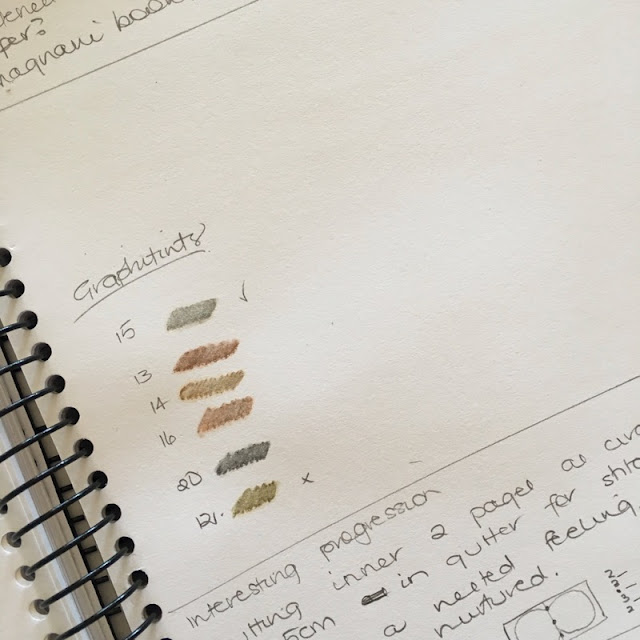 per?
magnani book
Graphitints
15 ✓
13
14
16
20
21. x
interesting progression
inner 2 pages as
5cm in gutter for
a nested feeling,
nurtured.